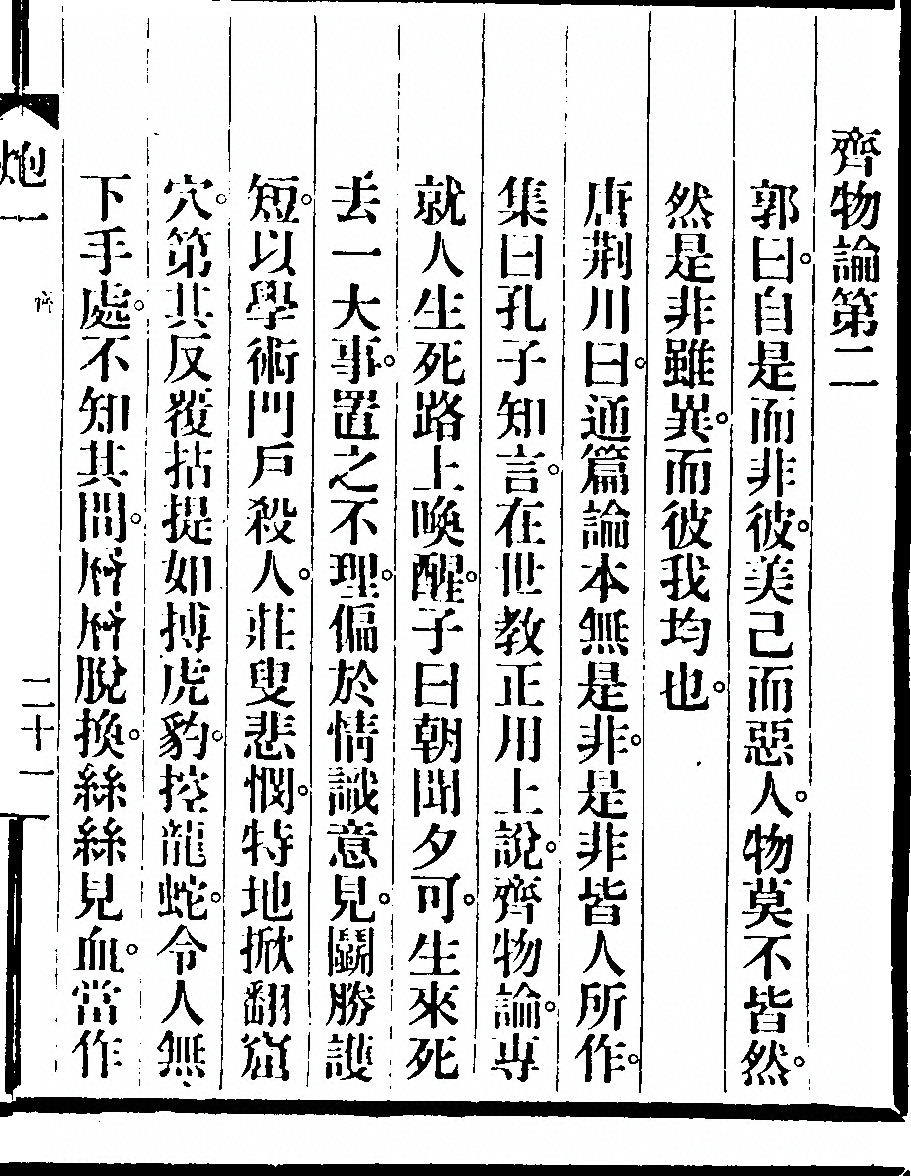 齊物論第二
郭曰。自是而非彼。美己而惡人。物莫不皆然。
然是非雖異。而彼我均也。
唐荆川曰。通篇論本無是非。是非皆人所作。
集曰孔子知言。在世教正用上說。齊物論。專
就人生死路上喚醒。子曰朝聞夕可。生來死
去一大事。置之不理。偏於情識意見。鬭勝護
短。以學術門戶殺人。莊叟悲憫。特地掀翻窟
穴。第其反覆拈提如搏虎豹。控龍蛇。令人無
下手處。不知其間。層層脫換。絲絲見血。當作
炮一
齊
二十一